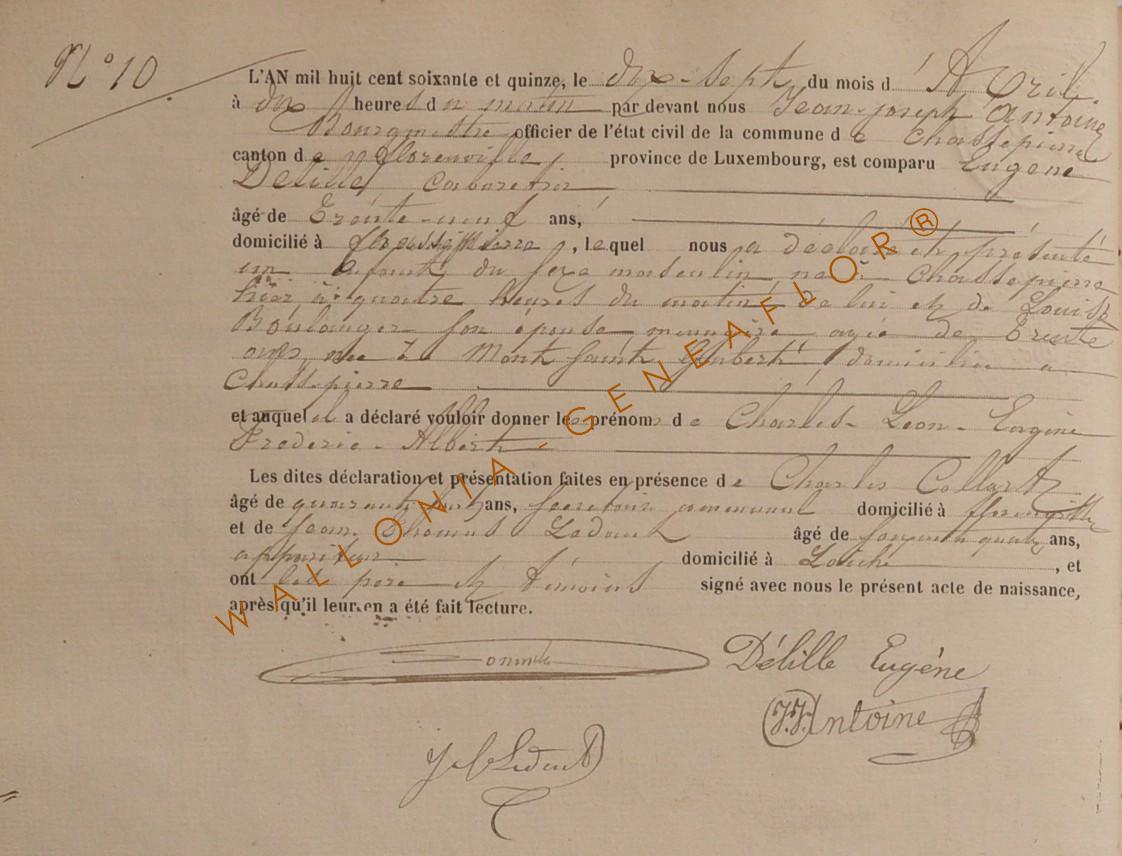 N° 10
L'AN mil huit cent soixante et quinze, le dix-sept du mois d'Avril
à dix heures du matin par devant nous Jean-joseph Antoine
Bourgmestre officier de l'état civil de la commune de Chassepierre
canton de florenville, province de Luxembourg, est comparu Eugène
Delille, Cabaretier
âgé de Trente-neuf ans,
domicilié à , lequel nous a déclaré et présenté
un Enfant du sexe masculin né à Chassepierre
hier à quatre heures du matin de lui et de Louise
Boulanger son épouse agée de Trente
ans, née à Mont Saint Guibert, domiciliée à
Chassepierre
et auquel il a déclaré vouloir donner les prénoms de Charles-Léon-Eugène
Frederic-Albert
Les dites déclaration et présentation faites en présence de Charles Collart
âgé de ans, secrétaire communal domicilié à
et de Jean Thomas Ledent âgé de ans,
appariteur domicilié à Laiche, et
ont les père et témoins signé avec nous le présent acte de naissance,
après qu'il leur en a été fait lecture.
Délille Eugène
J.J. Antoine
WALLONIA-GENEAFLOR®